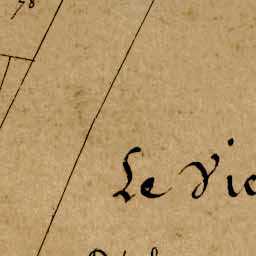 78
Le Vic